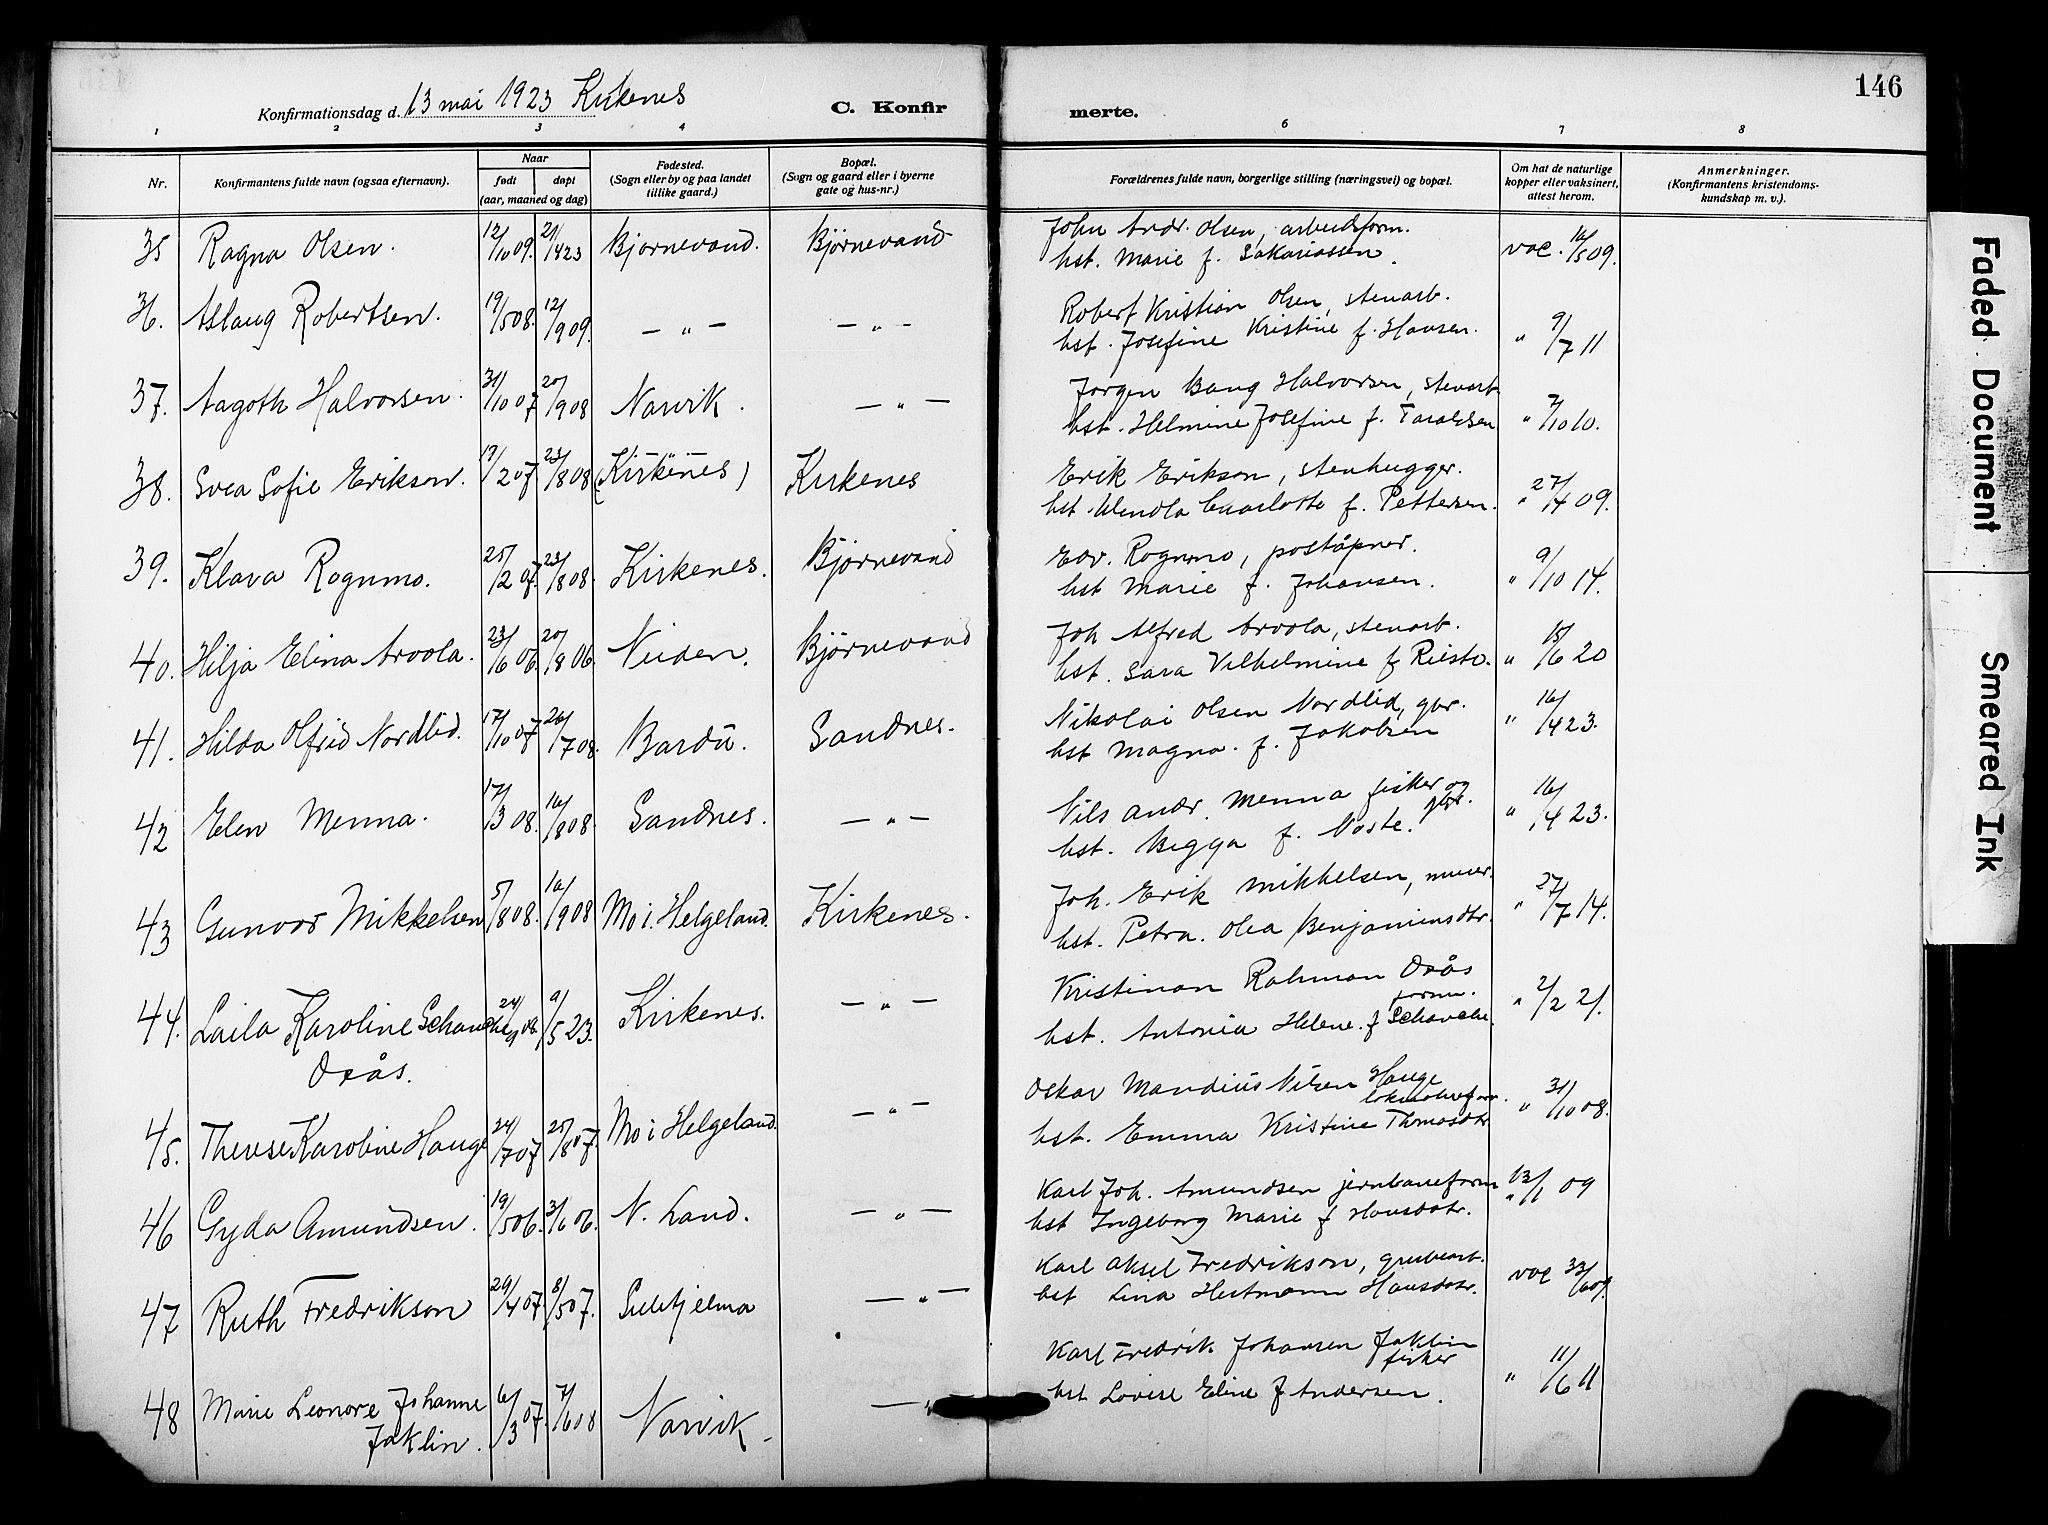 146
Konfirmationsdag d. 13 mai 1923 Kirkenes
C. Konfirmerte.
1 2 3 4 6 7 8
Nr.
Konfirmantens fulde navn (ogsaa efternavn).
Naar
født
døpt
(aar, maaned og dag)
Fødested.
(Sogn eller by og paa landet
tillike gaard.)
Bopæl.
(Sogn og gaard eller i byerne
gate og hus-nr.)
Forældrenes fulde navn, borgerlige stilling (næringsvei) og bopæl.
Om hat de naturlige
kopper eller vaksinert,
attest herom.
Anmerkninger.
(Konfirmantens kristendoms-
kundskap m. v.).
35 Ragna Olsen. 12/10 09. 21/4 23 Bjørnevand. Bjørnevand John Andr. Olsen, arbeidsform.
hst. Marie f. Sakariassen. vac. 16/5 09.
36. Aslaug Robertsen. 19/5 08. 12/9 09. — " — — " — Robert Kristian Olsen, stenarb.
hst. Josefine Kristine f. Hansen. " 9/7 11
37. Aagoth Halvorsen. 31/10 07 20/9 08 Narvik. — " — Jørgen Bang Halvorsen, stenarb.
hst. Helmine Josefine f. Taraldsen " 7/10 10.
38. Svea Sofie Erikson. 17/2 07 23/8 08 (Kirkenes) Kirkenes Erik Erikson, stenhugger.
hst. Wendla Charlotte f. Pettersen. " 27/4 09.
39. Klara Rognmo. 25/2 07. 23/8 08. Kirkenes. Bjørnevand Edv. Rognmo, poståpner.
hst Marie f. Johansen. " 9/10 14.
40. Hilja Elina Arvola. 23/6 06. 20/8 06. Neiden. Bjørnevand Joh Alfred Arvola, stenarb.
hst. Sara Vilhelmine f Riesto. " 15/6 20
41. Hilda Olfrid Nordlid. 17/10 07 26/7 08. Bardu. Sandnes. Nikolai Olsen Nordlid, gbr.
hst Magna. f. Jakobsen " 16/4 23.
42 Elen Menna. 17/3 08. 16/8 08. Sandnes. — " — Nils Andr. Menna fisker og
gbr.
hst. Bigga f. Noste. " 16/4 23.
43 Gunvor Mikkelsen 5/8 08. 10/9 08 Mo i Helgeland. Kirkenes. Joh. Erik Mikkelsen, murer.
hst. Petra. Olea Benjaminsdtr. " 27/7 14.
44. Laila Karoline Schanche 9/5 23. Kirkenes. — " — Kristinan Rahman Osås
form.
Osås. hst. Antonia Helene. f Schanche. " 2/2 21.
45. Therese Karoline Hauge 24/7 07 25/8 07. Mo i Helgeland. — " — Oskar Mandius Nilsen Hauge
hst. Emma Kristine Thomasdtr " 31/10 08.
46 Gyda Amundsen. 19/5 06. 3/6 06. N. Land. — " — Karl Joh. Amundsen jernbaneform
hst Ingeborg Marie f Hansdatr. " 13/1 09
47 Ruth Fredrikson 29/4 07 8/5 07. Sulitjelma — " — Karl Aksel Fredrikson, grubearb.
hst Lina Hertmann Hansdatr. vac
48 Marie Leonore Johanne 6/3 07. 7/6 08 Narvik — " Karl Fredrik Johansen Jaklin
fisker
Jaklin. hst Lovise Eline f Andersen. " 11/6 11
Faded Document
Smeared Ink